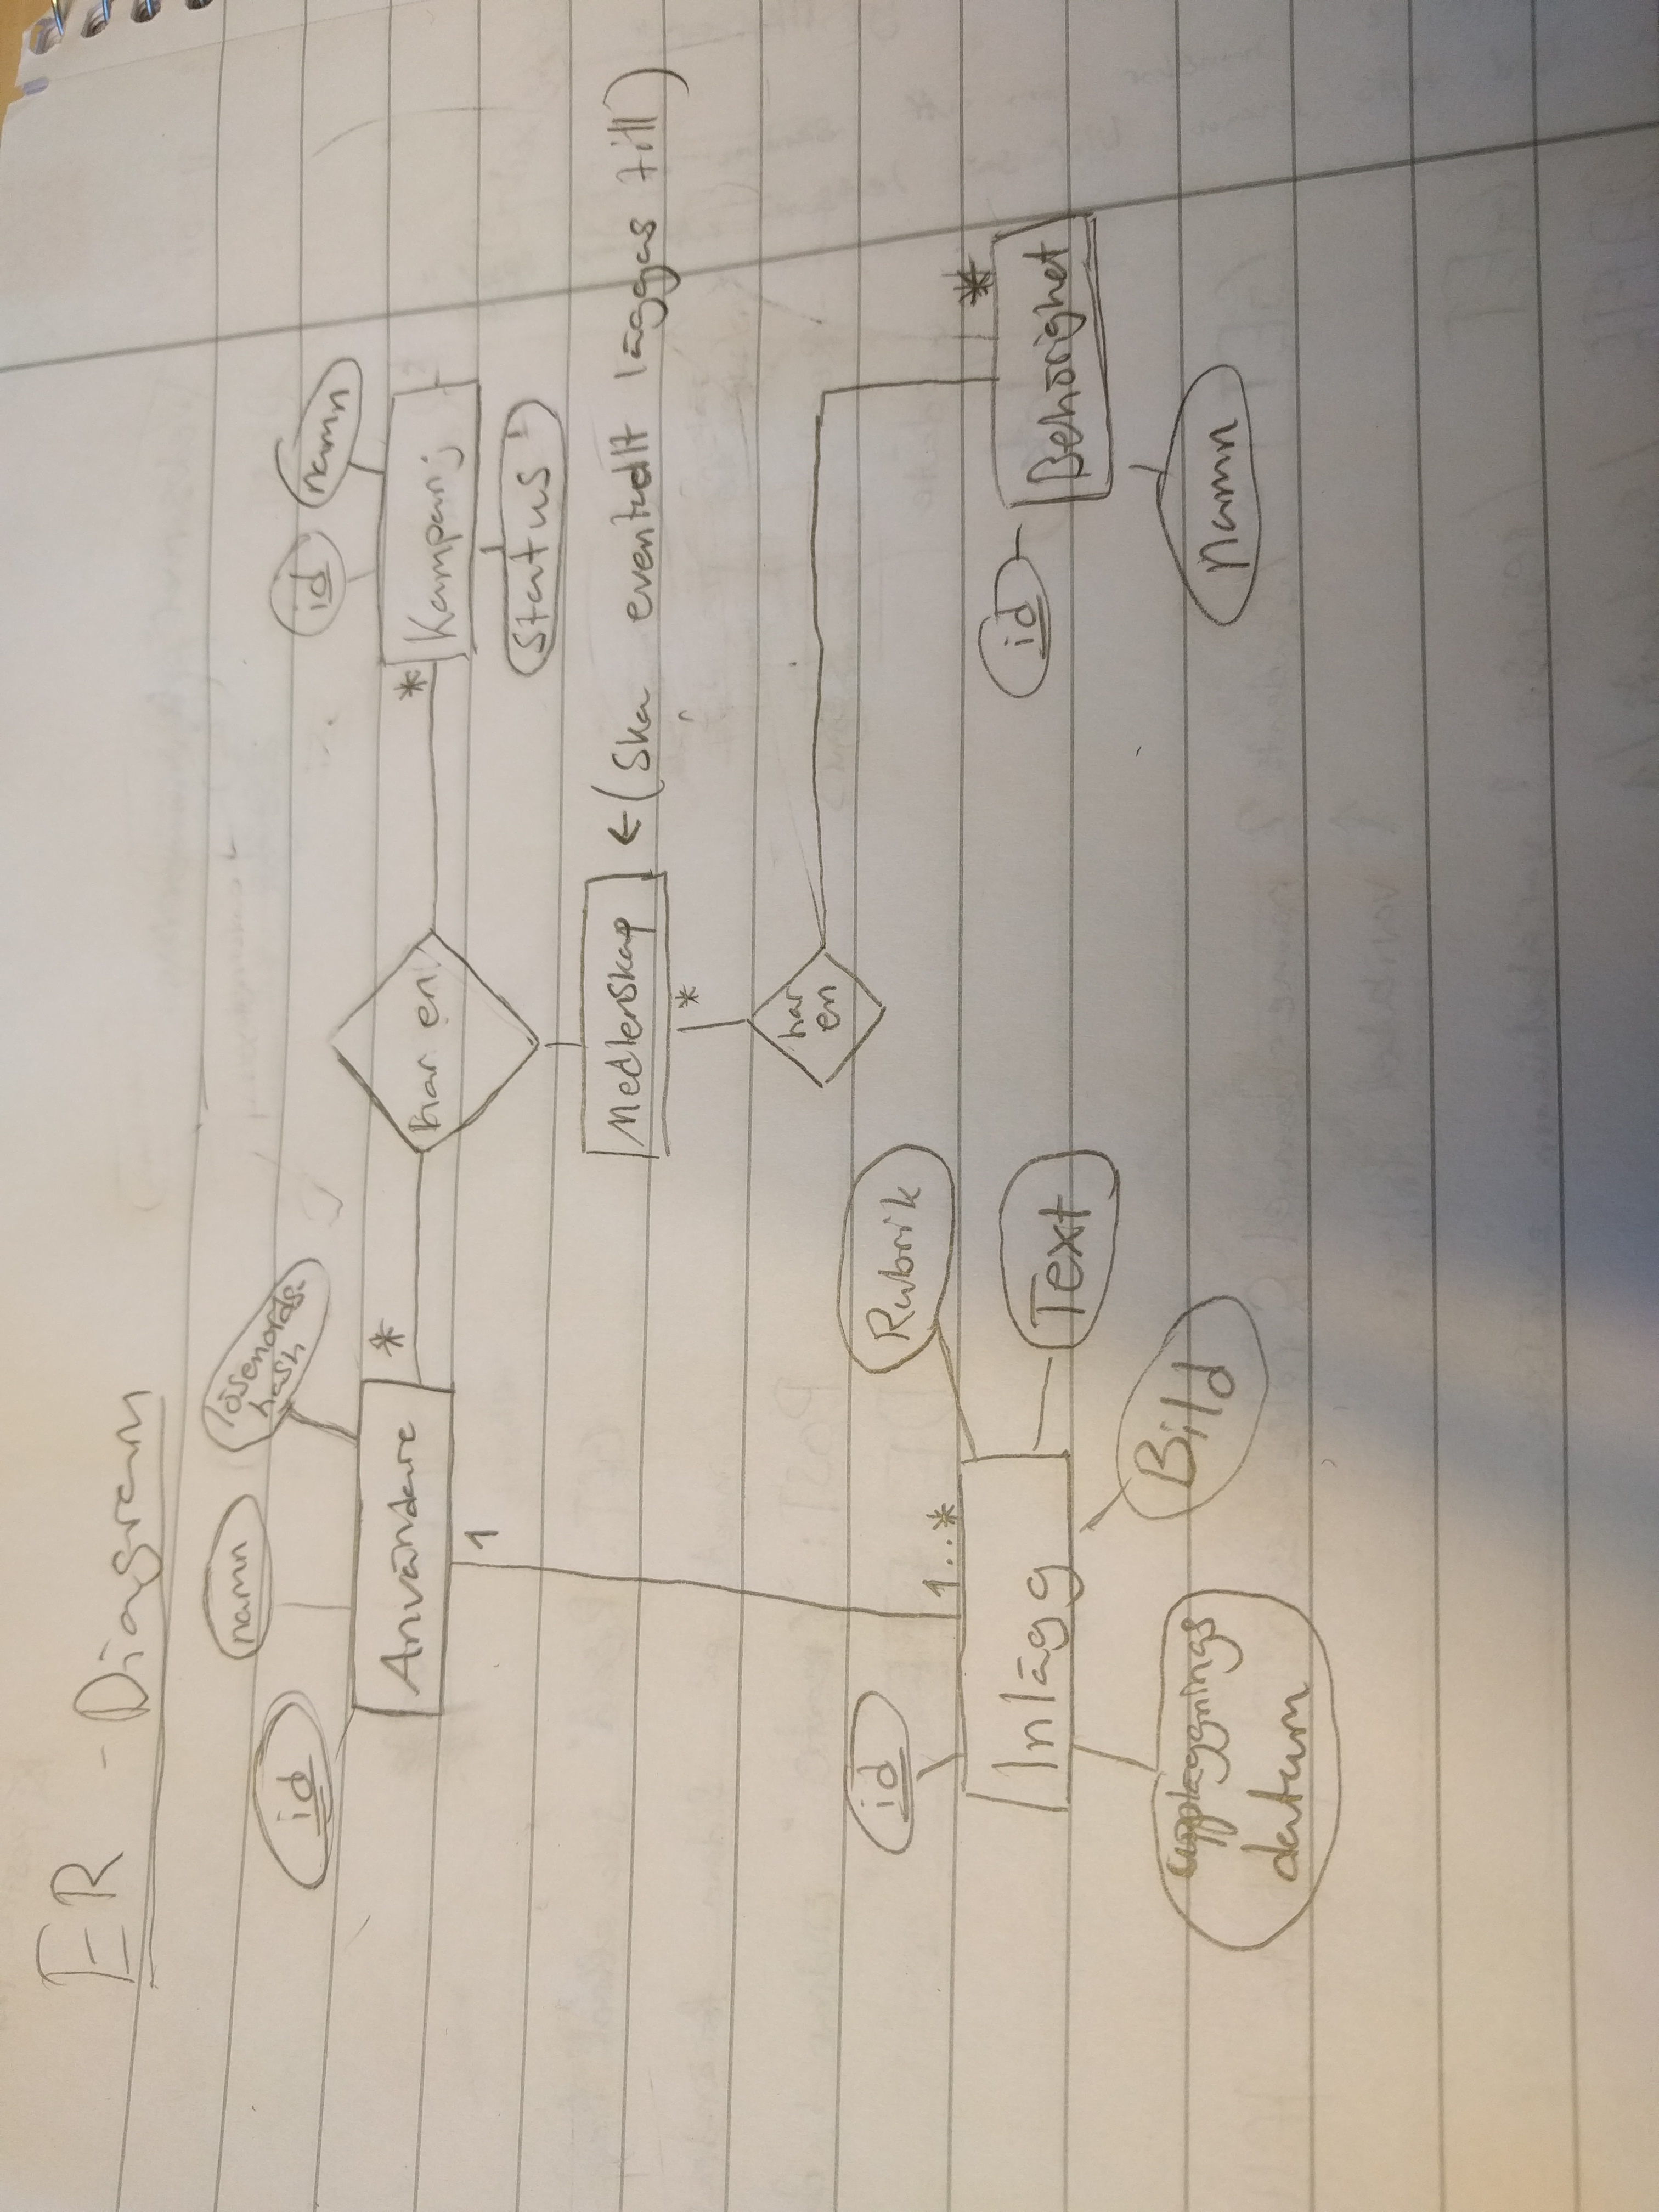 ER - Diagram
id
namn
lösenords-
hash
id
namn
Användare
*
har en
*
Kampanj
Status
1
Medlemskap
← (Ska eventuellt läggas till)
*
har
en
*
Behörighet
id
Namn
1...*
id
Rubrik
Inlägg
Text
Bild
uppläggnings
datum